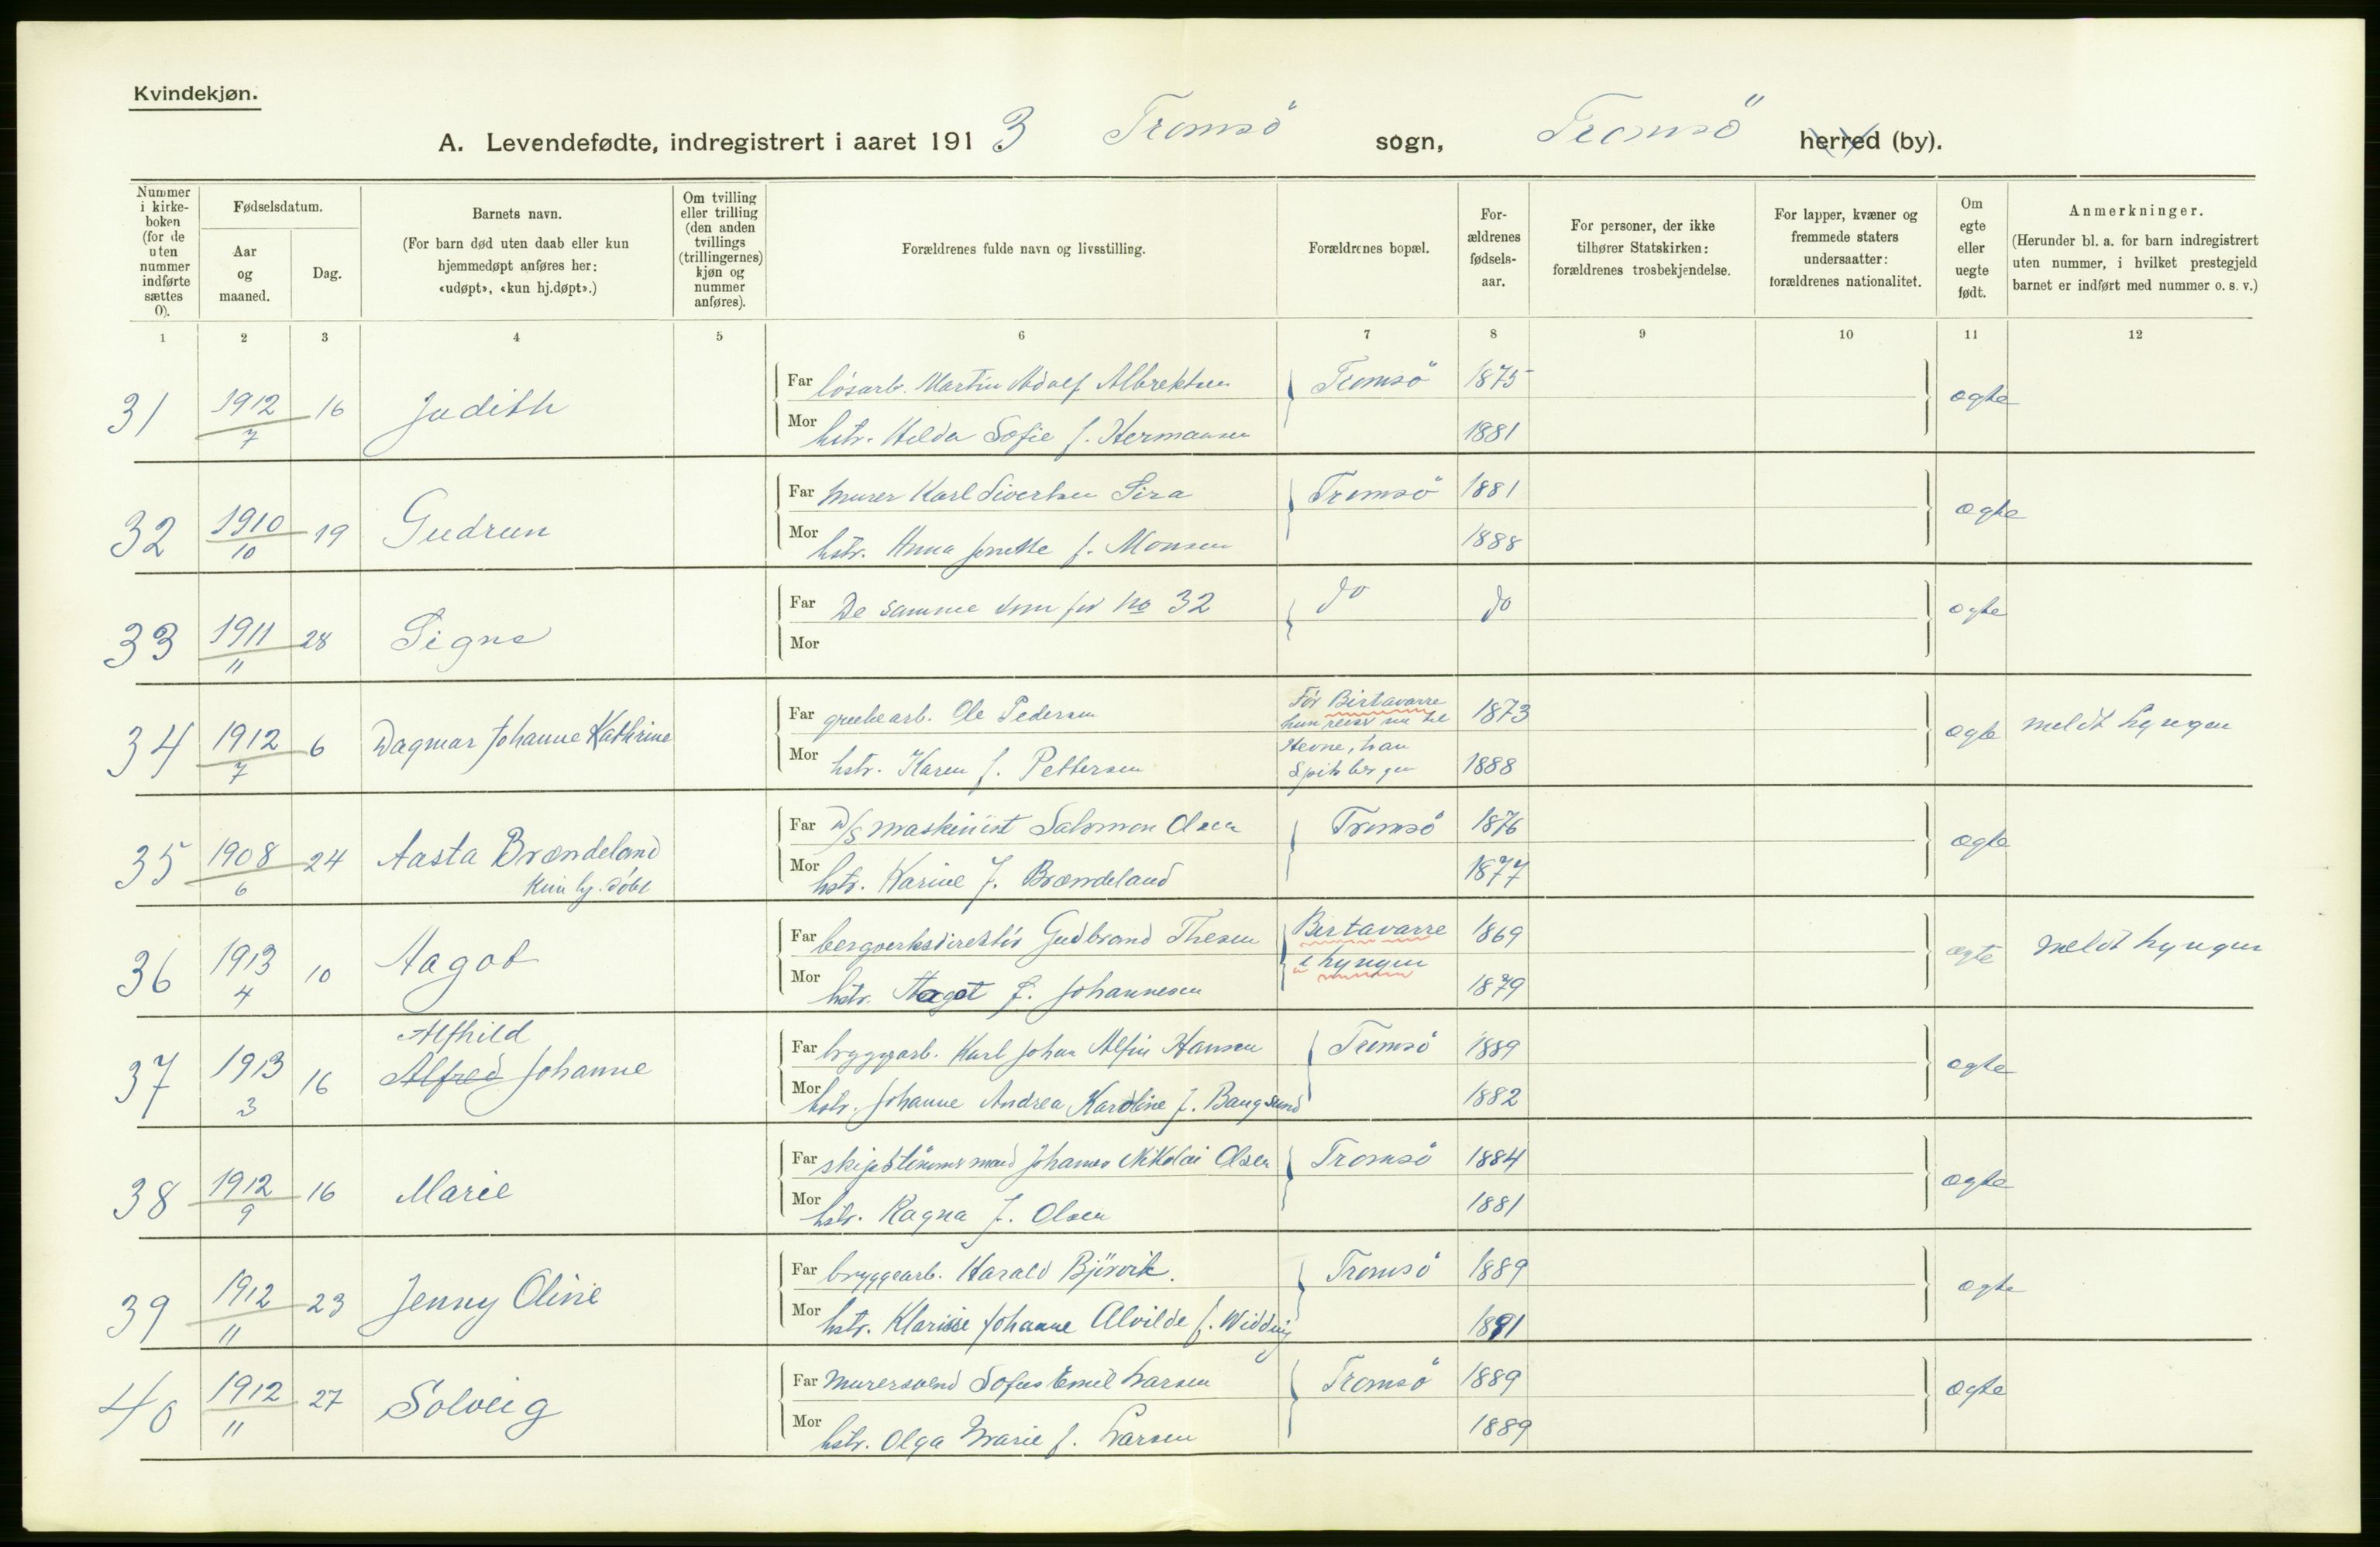 Kvindekjøn.
A. Levendefødte, indregistrert i aaret 1913 Tromsö sogn, Tromsö herred (by).
Nummer i kirke-boken (for de uten nummer indførte sættes 0).
Fødselsdatum.
Aar og maaned.
Dag.
Barnets navn.
(For barn død uten daab eller kun hjemmedøpt anføres her: «udøpt», «kun hj.døpt».)
Om tvilling eller trilling (den anden tvillings (trillingernes) kjøn og nummer anføres).
Forældrenes fulde navn og livsstilling.
Forældrenes bopæl.
For-ældrenes fødsels-aar.
For personer, der ikke tilhører Statskirken: forældrenes trosbekjendelse.
For lapper, kvæner og fremmede staters undersaatter: forældrenes nationalitet.
Om egte eller uegte født.
Anmerkninger.
(Herunder bl. a. for barn indregistrert uten nummer, i hvilket prestegjeld barnet er indført med nummer o. s. v.)
1 2 3 4 5 6 7 8 9 10 11 12
31 1912/7 16 Judith Far løsarb. Martin Adolf Albrektsen Tromsö 1875 ægte
Mor hstr. Hilda Sofie f. Hermansen 1881
32 1910/10 19 Gudrun Far murer Karl Sivertsen Sira Tromsö 1881 ægte
Mor hstr. Anna Jonette f. Monsen 1888
33 1911/11 28 Signe Far De samme som for no 32 do do ægte
Mor
34 1912/7 6 Dagmar Johanne Kathrine Far grubearb. Ole Pedersen För Birtavarre hun reiser nu til 1873 ægte meldt Lyngen
Mor hstr. Karen f. Pettersen Hevne, han Spitsbergen 1888
35 1908/6 24 Aasta Brændeland Far D/S maskinist Salomon Olsen Tromsö 1876 ægte
Kun hj. döbt Mor hstr. Karine f. Brændeland 1877
36 1913/4 10 Aagot Far bergverksdirektör Gudbrand Thesen Birtavarre 1869 ægte meldt Lyngen
Mor hstr. Aagot f. Johannesen i Lyngen 1879
Alfhild
37 1913/3 16 Alfred Johanne Far bryggearb. Karl Johan Alfin Hansen Tromsö 1889 ægte
Mor hstr. Johanne Andrea Karoline f. Bangsund 1882
38 1912/9 16 Marie Far skibstömmermand Johannes Nikolai Olsen Tromsö 1884 ægte
Mor hstr. Ragna f. Olsen 1881
39 1912/11 23 Jenny Oline Far bryggearb. Harald Björvik. Tromsö 1889 ægte
Mor hstr. Klarisse Johanne Alvilde f. Widding 1891
40 1912/11 27 Solveig Far murersvend Sofus Emil Larsen Tromsö 1889 ægte
Mor hstr. Olga Marie f. Larsen 1889